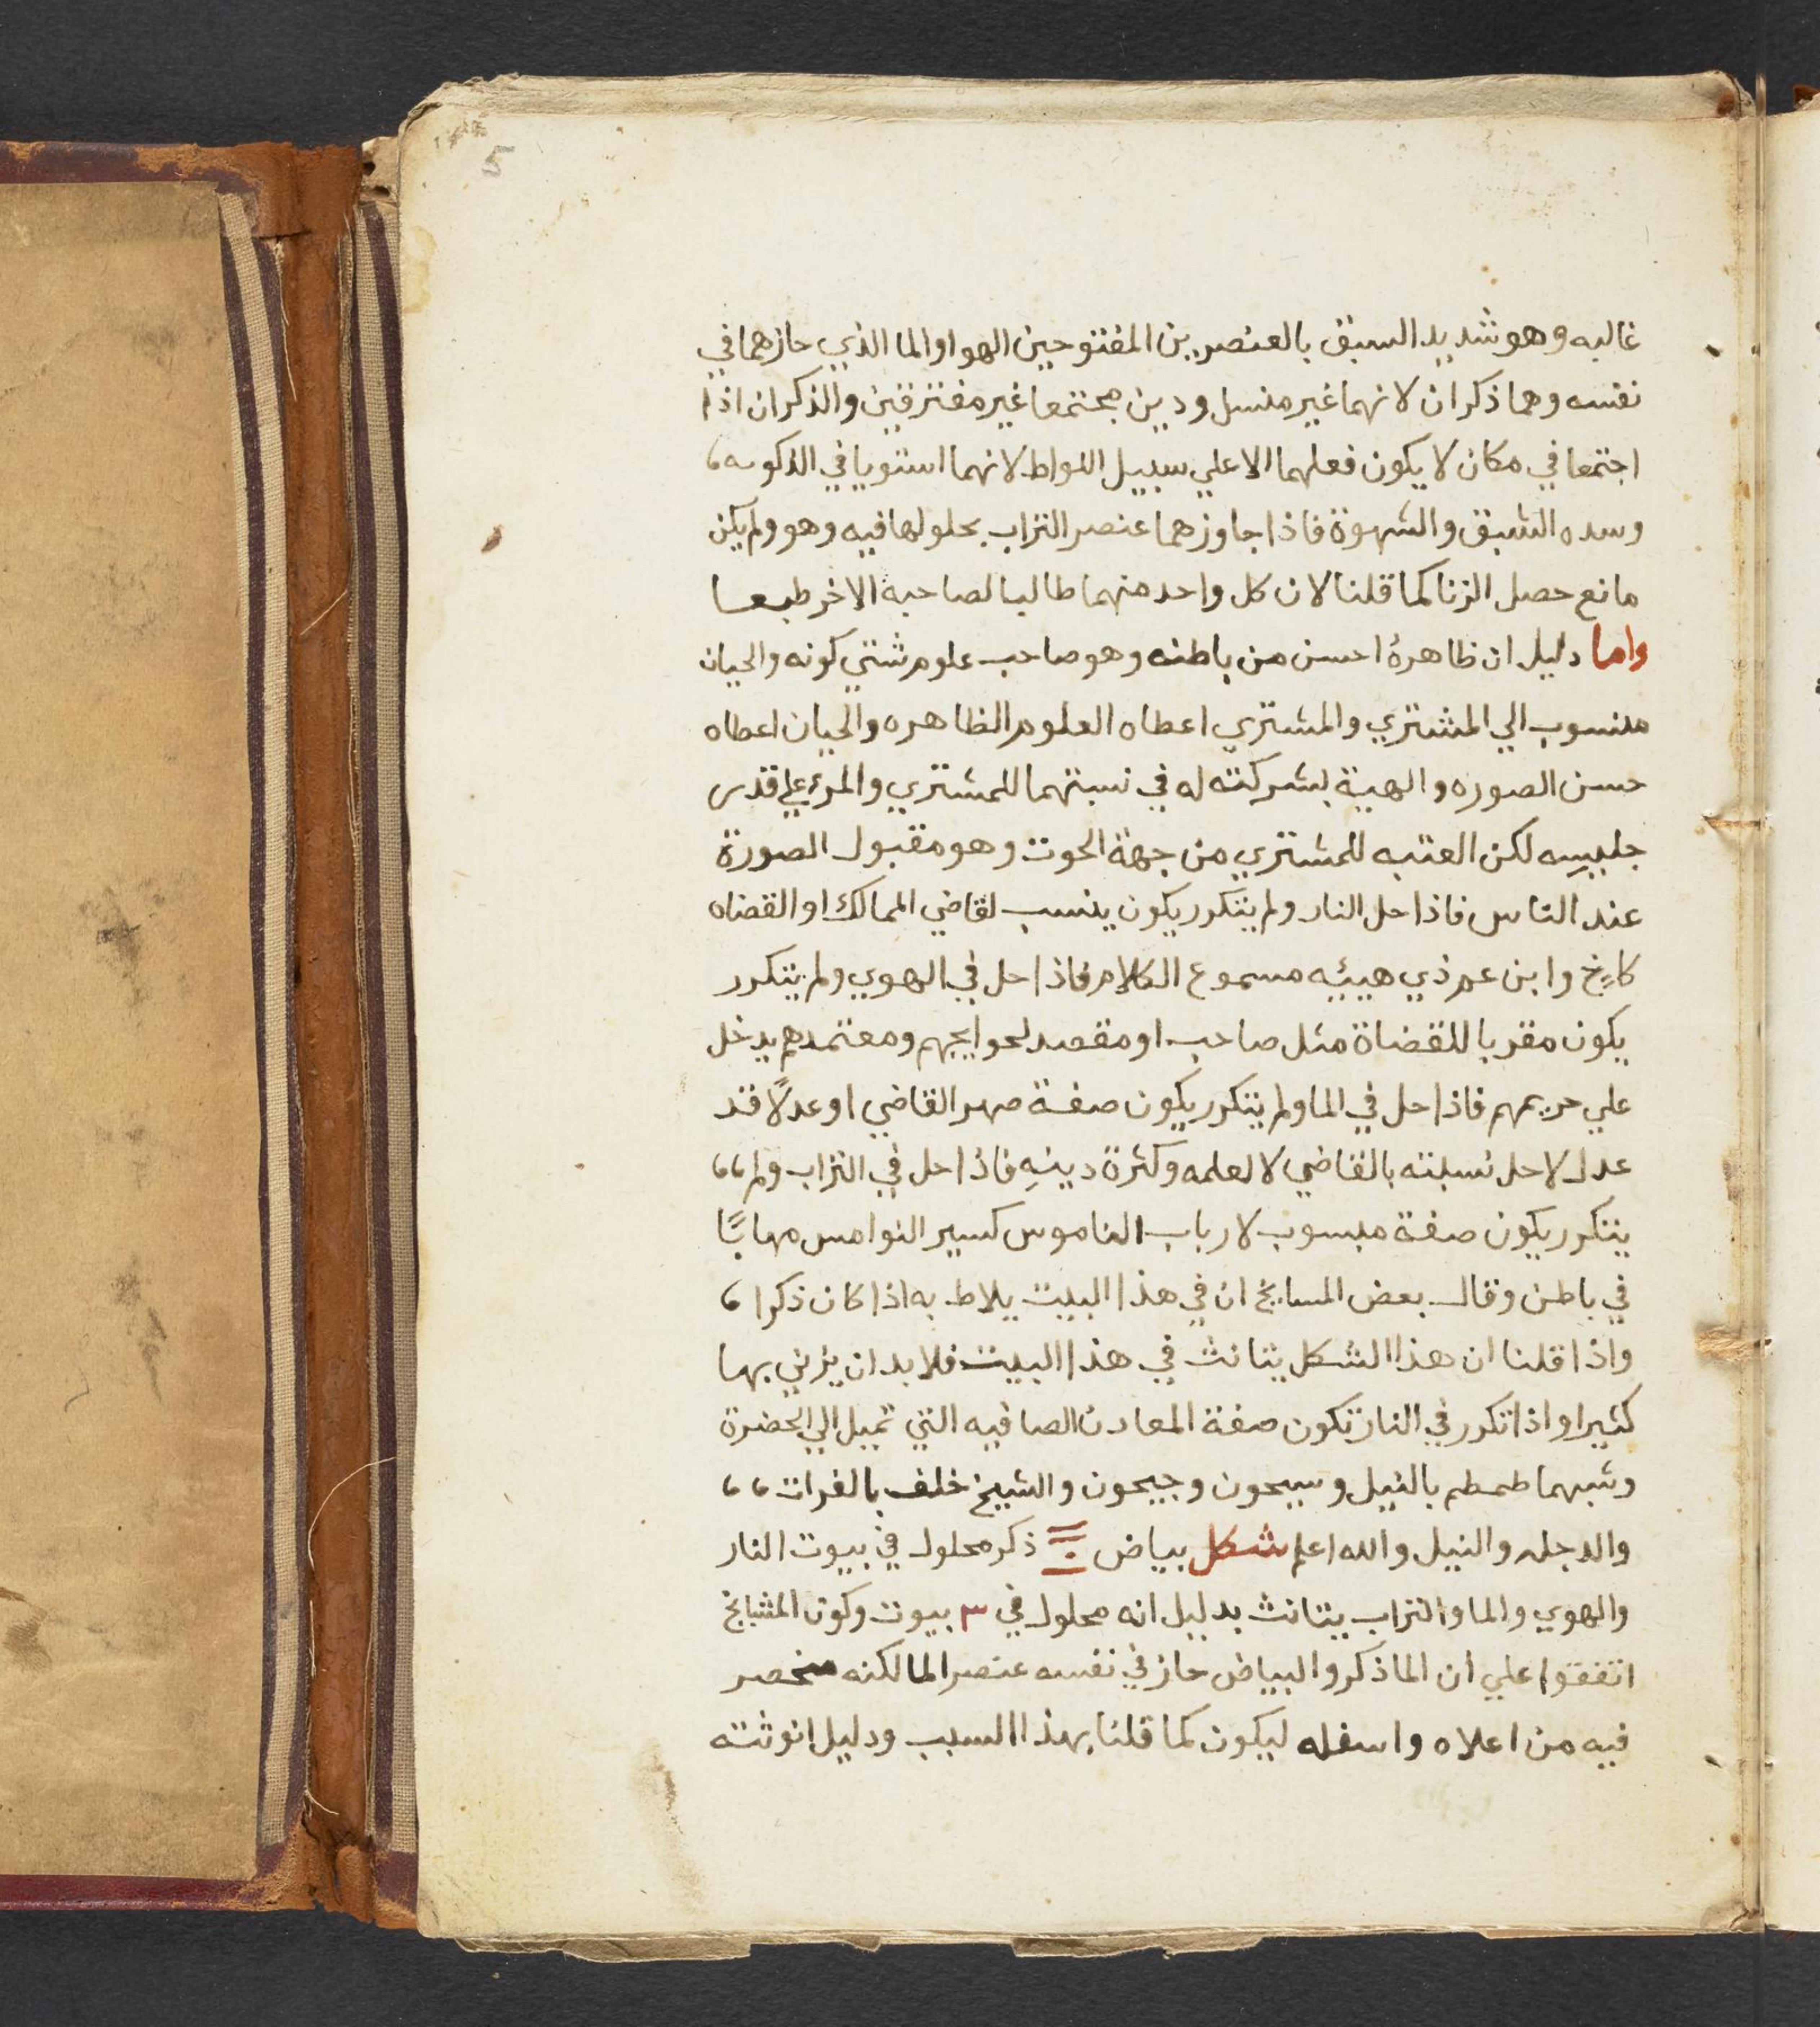 5
غالبه وهو شديد السبق بالعنصرين المفتوحين الهوا والما الذي حازهما في
نفسه وهما ذكران لانهما غير منسل ودين مجتمعا غير مفترقين والذكران اذا
اجتمعا في مكان لا يكون فعلهما الا علي سبيل اللواط لانهما استويا في الذكوىه
وسده الشبق والشهوة فاذا جاوزهما عنصر التراب بحلولها فيه وهو ولم يكن
مانع حصل الزنا كما قلنا لان كل واحد منهما طالبا لصاحبه الاخر طبعا
واما دليل ان ظاهرهٔ احسن من باطنه وهو صاحب علوم شتي كونه والحيان
منسوب الي المشتري والمشتري اعطاه العلوم الظاهره والحيان اعطاه
حسن الصوره والهية بشركته له في نسبتهما للمشتري والمرء علي قدس
جليسه لكن العتبه للمشتري من جهة الحوت وهو مقبول الصورة
عند الناس فاذا حل النار ولم يتكرر يكون ينسب لقاضي الممالك او القضاه
كاخ وابن عم ذي هيئه مسموع الكلام فاذا حل في الهوي ولم يتكرر
يكون مقربا للقضاة مثل صاحب او مقصد لحوايجهم ومعتمدهم يدخل
علي حريمهم فاذا حل في الما ولم يتكرر يكون صفة صهر القاضي او عدلًا قد
عدل لاحل نسبته بالقاضي لا لعلمه وكثرة دينهِ فاذا حل في التراب ولم
يتكرر يكون صفة مبسوب لارباب الناموس كسير النوامس مهابًا
في باطن وقال بعض المسايخ ان في هذا البيت يلاط به اذا كان ذكرا
واذا قلنا ان هذا الشكل يتانث في هذا البيت فلا بد ان يزني بها
كثيرا واذا تكرر في النار تكون صفة المعادن الصافيه التي تميل الي الخضرة
وشبهما طمطم بالنيل وسيحون وجيحون والشيخ خلف بالفرات
والدجله والنيل والله اعلم شكل بياض ذكر محلول في بيوت النار
والهوي والما والتراب يتانث بدليل انه محلول في ٣ بيوت وكون المشايخ
اتفقوا علي ان الما ذكر والبياض حاز في نفسه عنصر الما لكنه منحصر
فيه من اعلاه واسفله ليكون كما قلنا بهذا السبب ودليل انوثته